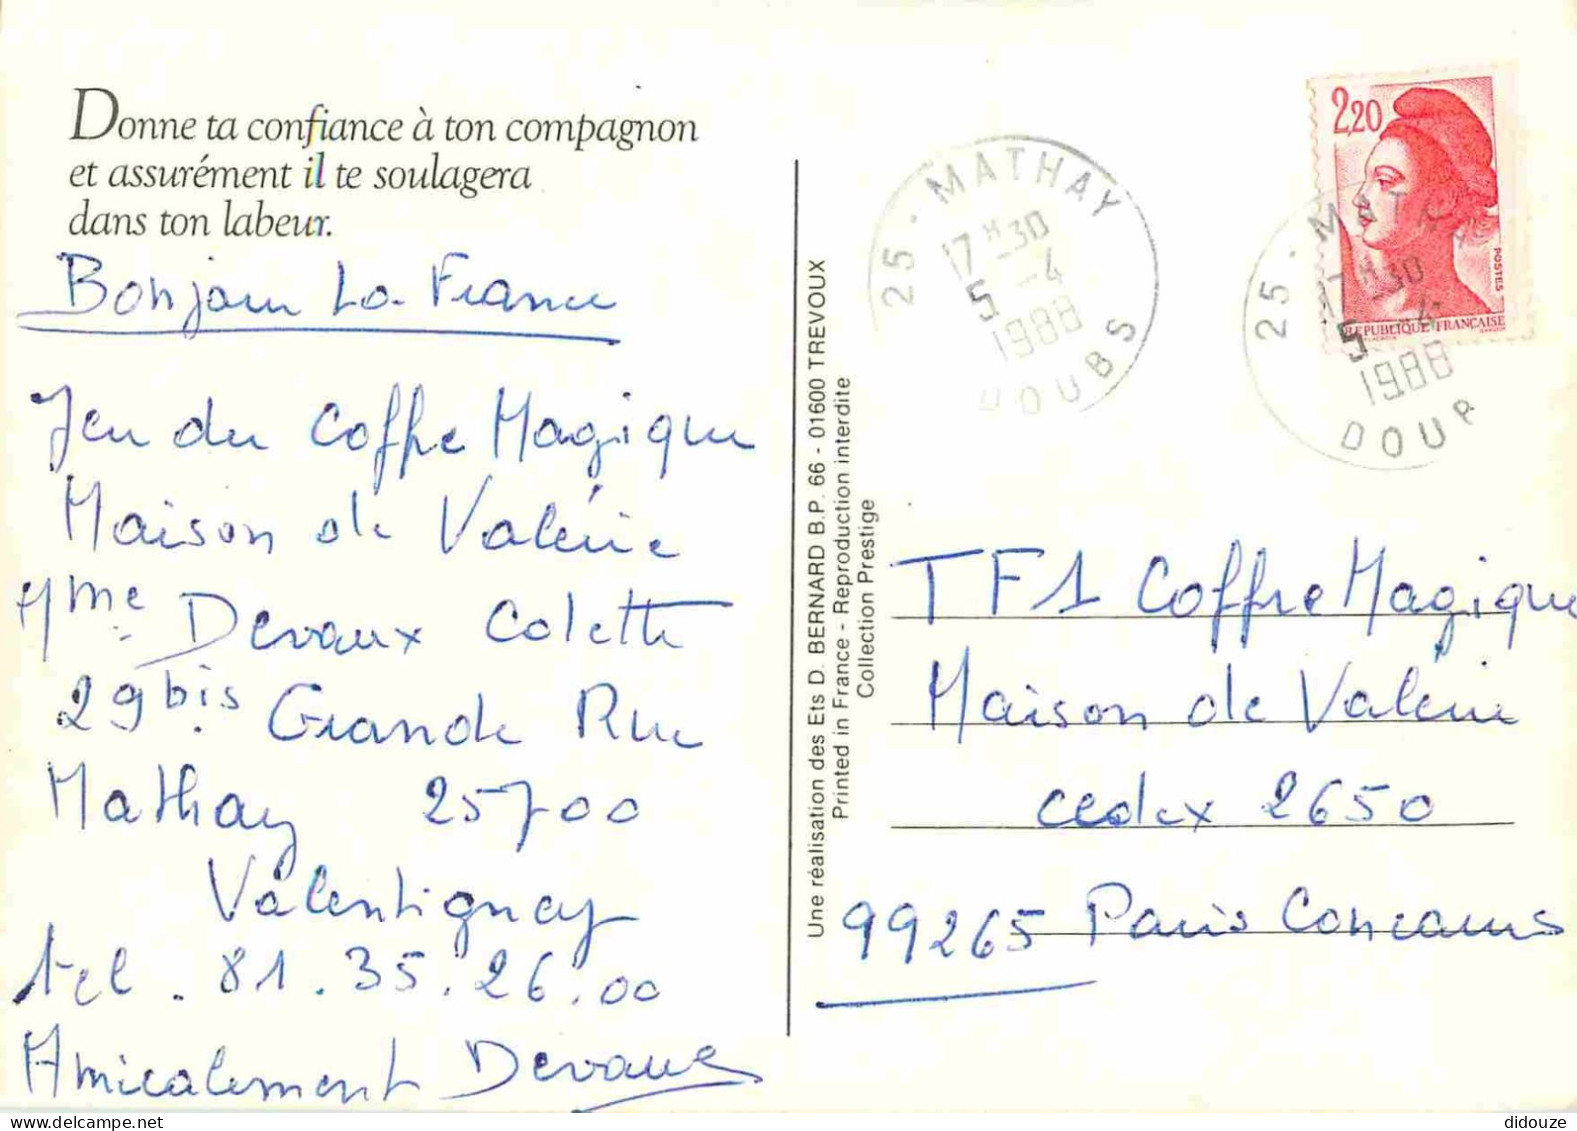 Donne ta confiance à ton compagnon
et assurément il te soulagera
dans ton labeur.
Bonjour La France
Jeu du Coffre Magique
Maison de Valérie
Mme Devaux Colette
29 bis Grande Rue
Mathay 25700
Valentigney
tel. 81.35.26.00
Amicalement Devaux
Une réalisation des Ets D. BERNARD B.P. 66 - 01600 TREVOUX
Printed in France - Reproduction interdite
Collection Prestige
25 - MATHAY
17H30
5 -4
1988
DOUBS
2,20
POSTES
REPUBLIQUE FRANÇAISE
25 - MATHAY
17H30
5 -4
1988
DOUB
TF1 Coffre Magique
Maison de Valérie
cedex 2650
99265 Paris Concours
didouze